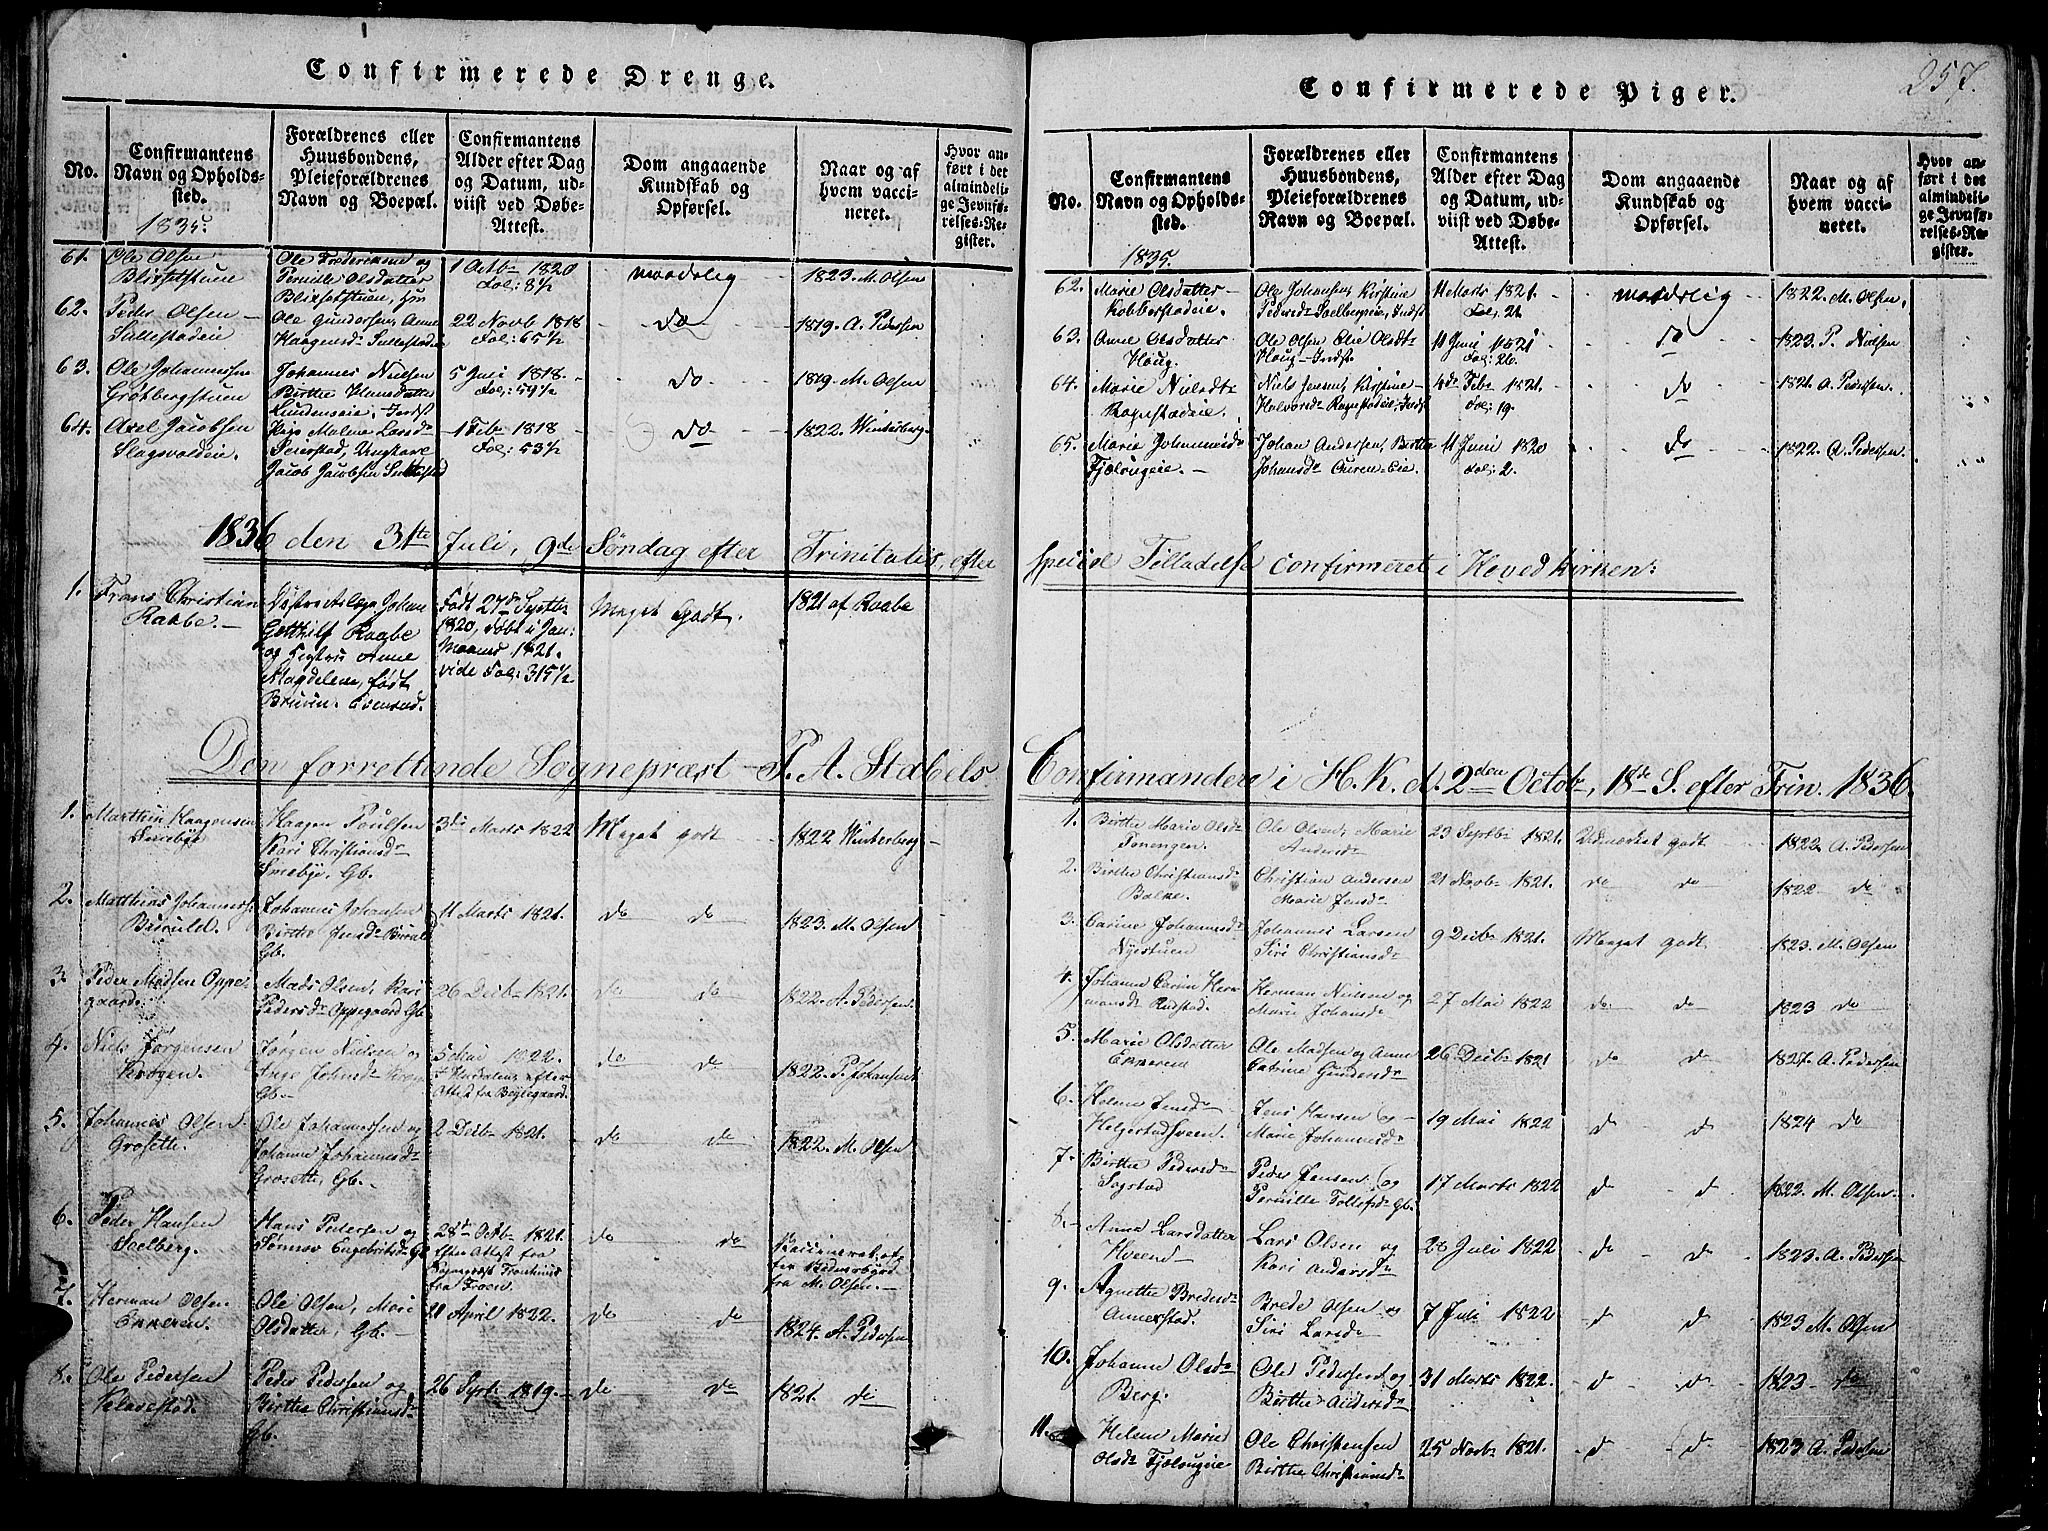 Confirmerede Drenge.
No.
Confirmantens
Navn og Opholds-
sted.
1835.
Forældrenes eller
Huusbondens,
Pleieforældrenes
Navn og Boepæl.
Confirmantens
Alder efter Dag
og Datum, ud-
viist ved Døbe-
Attest.
Dom angaaende
Kundskab og
Opførsel.
Naar og af
hvem vacci-
neret.
Hvor an-
ført i det
almindeli-
ge Jevnfø-
relses-Re-
gister.
61. Ole Olsen
Blixsetstuen
Ole Frederiksen og
Pernille Olsdatter
Blixsetstuen,
1 Octb. 1820
Fol: 8½
maadelig
1823. M. Olsen
62. Peder Olsen
Sullestadeie
Ole Gundersen, Anne
Haagensd. Sullestadeie
22 Novb 1818
Fol: 65½
do
1819. A. Pedersen
63. Ole Johannessen
Grøtbergstuen
Johannes Nielsen
Birthe Hansdatter
Lundenseie, Inds
5 Juli 1818.
Fol: 59½
do
1819. M. Olsen
64. Axel Jacobsen
Slagsvoldeie.
Pige Malene Larsd.
Peierstad, Ungkarl
Jacob Jacobsen Sullestad
1 Feb. 1818
Fol: 53½
do
1822. Winterberg
1836 den 31te Juli, 9de Søndag efter Trinitatis, efter
1. Frans Christian
Raabe.
Johan
Gotthilf Raabe
og Hustru Anne
Magdelene, født
Bruun. Evensad.
Født 27de Septb.
1820, døbt i Jan:
Maaned 1821.
vide Fol: 315½
Meget Godt.
1821 af Raabe
Den forrettende Sognepræst P. A. Stabels
1. Marthin Haagensen
Smebye
Haagen Poulsen
Kari Christiansd.
Smebye, Gb.
3de Marts 1822
Meget godt
1822 Winterberg
2. Matthias Johannes
Bururld.
Johannes Johansen
Birthe Jensd.
Gb.
11 Marts 1821.
do do
1823. M. Olsen
3. Peder Madsen Oppe-
gaard.
Mads Olsen, Kari
Pedersd. Oppegaard Gb.
26 Decb. 1821.
do do
1822. A. Pedersen
4. Niels Jørgensen
Krogen.
Jørgen Nielsen og
Inge Johnsd. Krogen
Gb.
5 Mai 1822.
efter
Attest fra Beylegaard.
do do
1822. P. Johansen
5. Johannes Olsen
Grosette.
Ole Johannessen og
Johanne Johannesd.
Grosette, Gb.
2 Decb. 1821.
do do
1822. M. Olsen
6. Peder Hansen
Soelberg.
Hans Pedersen og
Sønnov Engebretsd. Gb
28de Octb. 1821.
efter Attest fra
Sognepræst
fra Froen.
do do
fra M. Olsen.
7. Herman Olsen
Enneren.
Ole Olsen, Mari
Olsdatter, Gb.
21 April 1822.
do do
1824. A. Pedersen
8. Ole Pedersen
Klavestad.
Peder Pedersen og
Birthe Christiansd.
Gb.
26 Sept. 1819.
do do
1821. do
257.
Confirmerede Piger.
No.
Confirmantens
Navn og Opholds-
sted.
1835.
Forældrenes eller
Huusbondens,
Pleieforældrenes
Navn og Boepæl.
Confirmantens
Alder efter Dag
og Datum, ud-
viist ved Døbe-
Attest.
Dom angaaende
Kundskab og
Opførsel.
Naar og af
hvem vacci-
neret.
Hvor an-
ført i det
almindeli-
ge Jevnfø-
relses-Re-
gister.
62. Marie Olsdatter
Kobberstadeie.
Ole Johansen, Kirstine
Pedersd. Soelbergeie, Indst
11 Marts 1821.
Fol: 21
maadelig
1822. M. Olsen,
63. Anne Olsdatter
Houg.
Ole Olsen Elie Olsdt.
Houg Indst.
11 Juni 1821
Fol: 26.
do
1823. P. Nielsen
64. Marie Nielsdt.
Rognstadeie.
Niels Jensen, Kirstine
Halvorsd. Rognstadeie, Indst
4de Feb. 1821.
Fol: 19.
do
1821. A. Pedersen.
65. Marie Johannesd.
Fjælougeie.
Johan Andersen, Birthe
Johansd. Auren-Eie
11 Juni 1820
Fol: 2.
do
1822. A. Pedersen.
special Tilladelse confirmeret i Hovedkirken:
Confirmandere i H. K. d. 2den Octob. 18de S. efter Trin. 1836.
1. Birthe Marie Olsd.
Tonengen.
Ole Olsen, Marie
Andersd.
23 Septb. 1821.
Udmærket godt
1822. A. Pedersen
2. Birthe Christiansd.
Balke.
Christian Andersen
Marie Jensd.
21 Novb. 1821.
do do
1822 do
3. Carine Johannesd.
Nyestuen
Johannes Larsen
Siri Christiansd.
9 Decb. 1821.
Meget godt
1823. M. Olsen
4. Johanne Carin Her-
mansd. Rustad.
Herman Nielsen og
Marie Johansd.
27 Mai 1822
do do
1823 do
5. Marie Olsdatter
Enneren
Ole Madsen og Anne
Catrine Gundersd.
26 Decb. 1821
do do
1827. A. Pedersen
6. Helene Jensd.
Helgestadsveen.
Jens Hansen og
Marie Johannesd.
19 Mai 1822
do do
1824 do
7. Birthe Pedersd.
Sogstad
Peder Jensen og
Pernille Tollefsd. Gb.
17 Marts 1822
do do
1822. M. Olsen
8. Anne Larsdatter
Hveem
Lars Olsen og
Kari Andersd.
28 Juli 1822
do do
1823. A. Pedersen
9. Agnethe Bredesd.
Annerstad.
Brede Olsen og
Siri Larsd.
7 Juli 1822
do do
1823 M. Olsen
10. Johanne Olsd.
Berg.
Ole Pedersen og
Birthe Andersd.
31 Marts 1822.
do do
1823 do
11. Helene Marie
Olsd. Fjælougeie
Ole Christensen
Birthe Christiansd.
25 Novb. 1821.
do do
1823 A. Pedersen